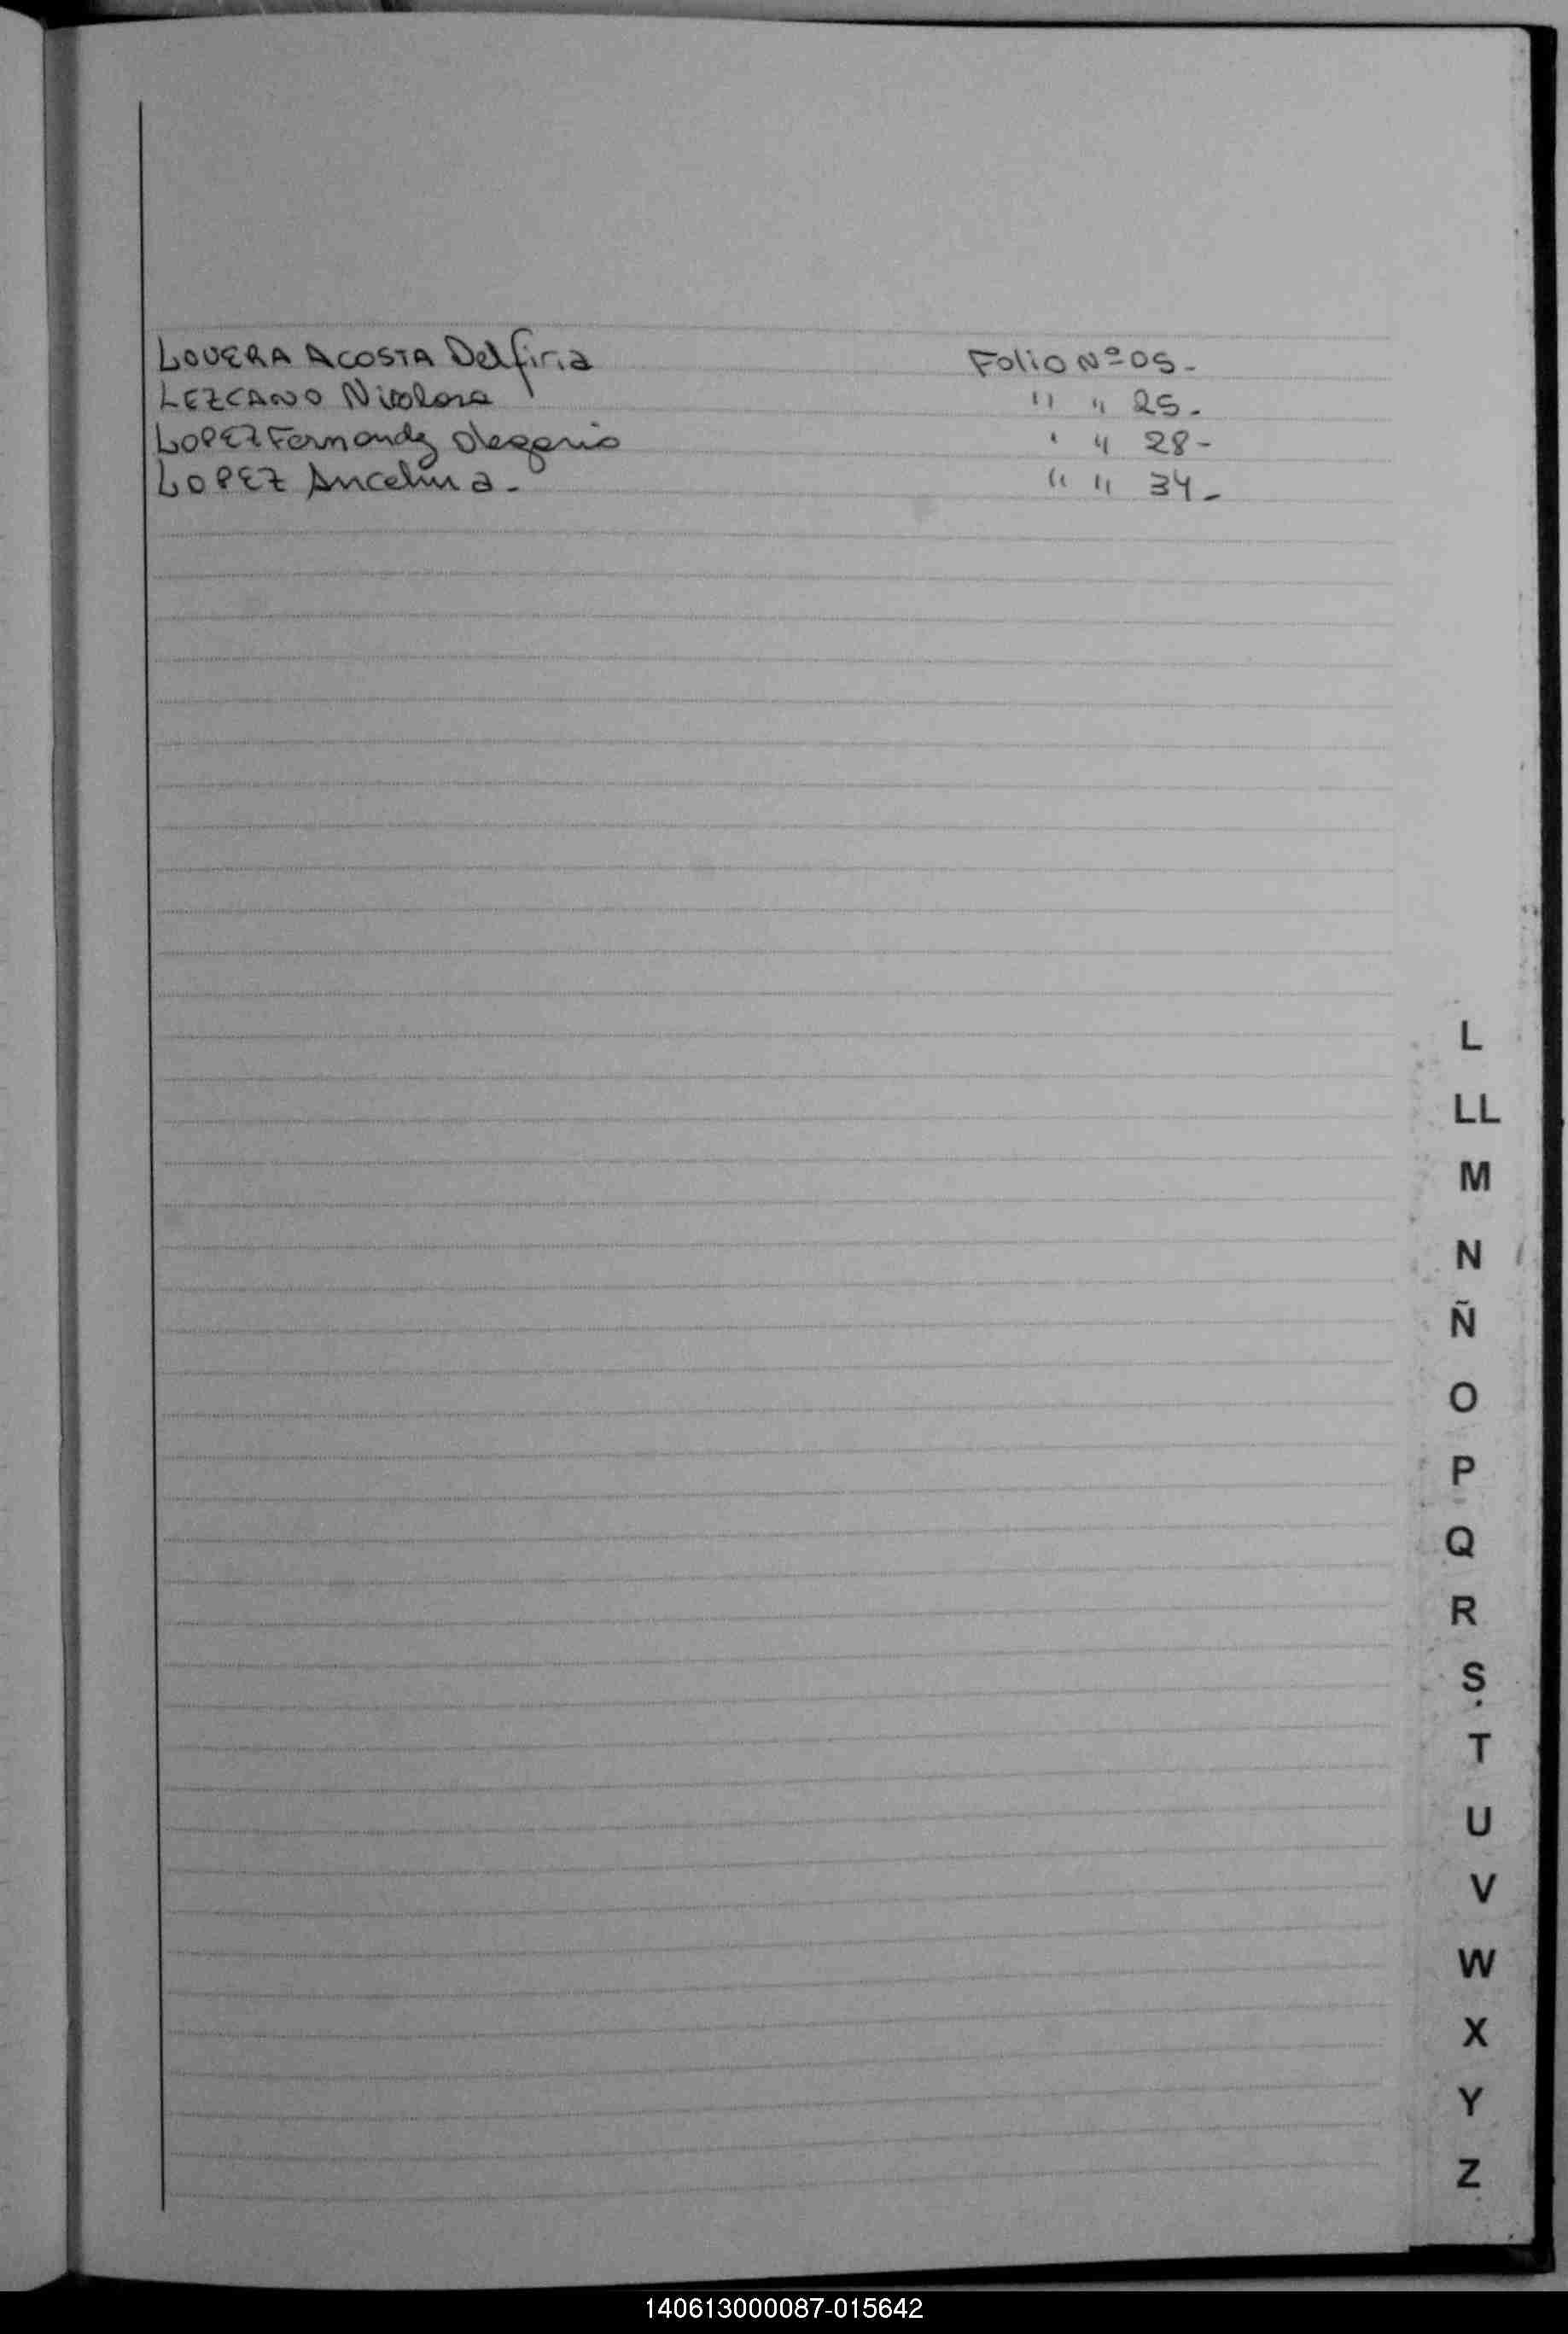 LOVERA ACOSTA Delfiria Folio Nº 05-
LEZCANO Nicolasa " " 25.
LOPEZ Fernandez Olegario " " 28-
LOPEZ Ancelma. " " 34-
L
LL
M
N
Ñ
O
P
Q
R
S
T
U
V
W
X
Y
Z
140613000087-015642